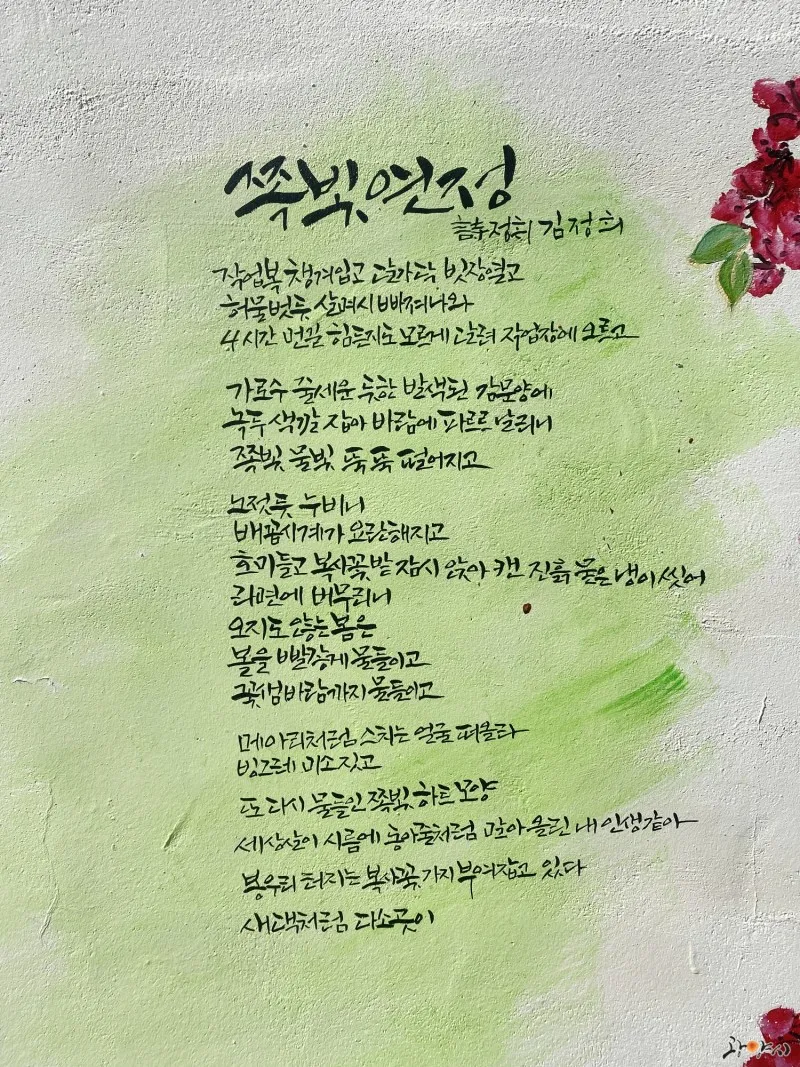 쪽빛연정
詩정희 김정희
작업복 챙겨입고 달가닥 빗장열고
허물벗듯 살며시 빠져나와
4시간 먼길 힘든지도 모르게 달려 작업장에 오르고
가로수 줄세운 듯한 발색된 감문양에
녹두색깔 잡아 바람에 파르르 날리니
쪽빛 물빛 뚝뚝 떨어지고
노젓듯 누비니
배꼽시계가 요란해지고
호미들고 복사꽃밭 잠시 앉아 캔 진흙 묻은 냉이 씻어
라면에 버무리니
오지도 않는 봄은
볼을 빨갛게 물들이고
꽃샘바람까지 물들이고
메아리처럼 스치는 얼굴 떠올라
빙그레 미소짓고
또 다시 물들인 쪽빛 하트모양
세상살이 시름에 홍아줄처럼 말아 올린 내 인생같아
봉우리 터지는 복사꽃 가지 부여잡고 있다
새댁처럼 다소곳이
광양시